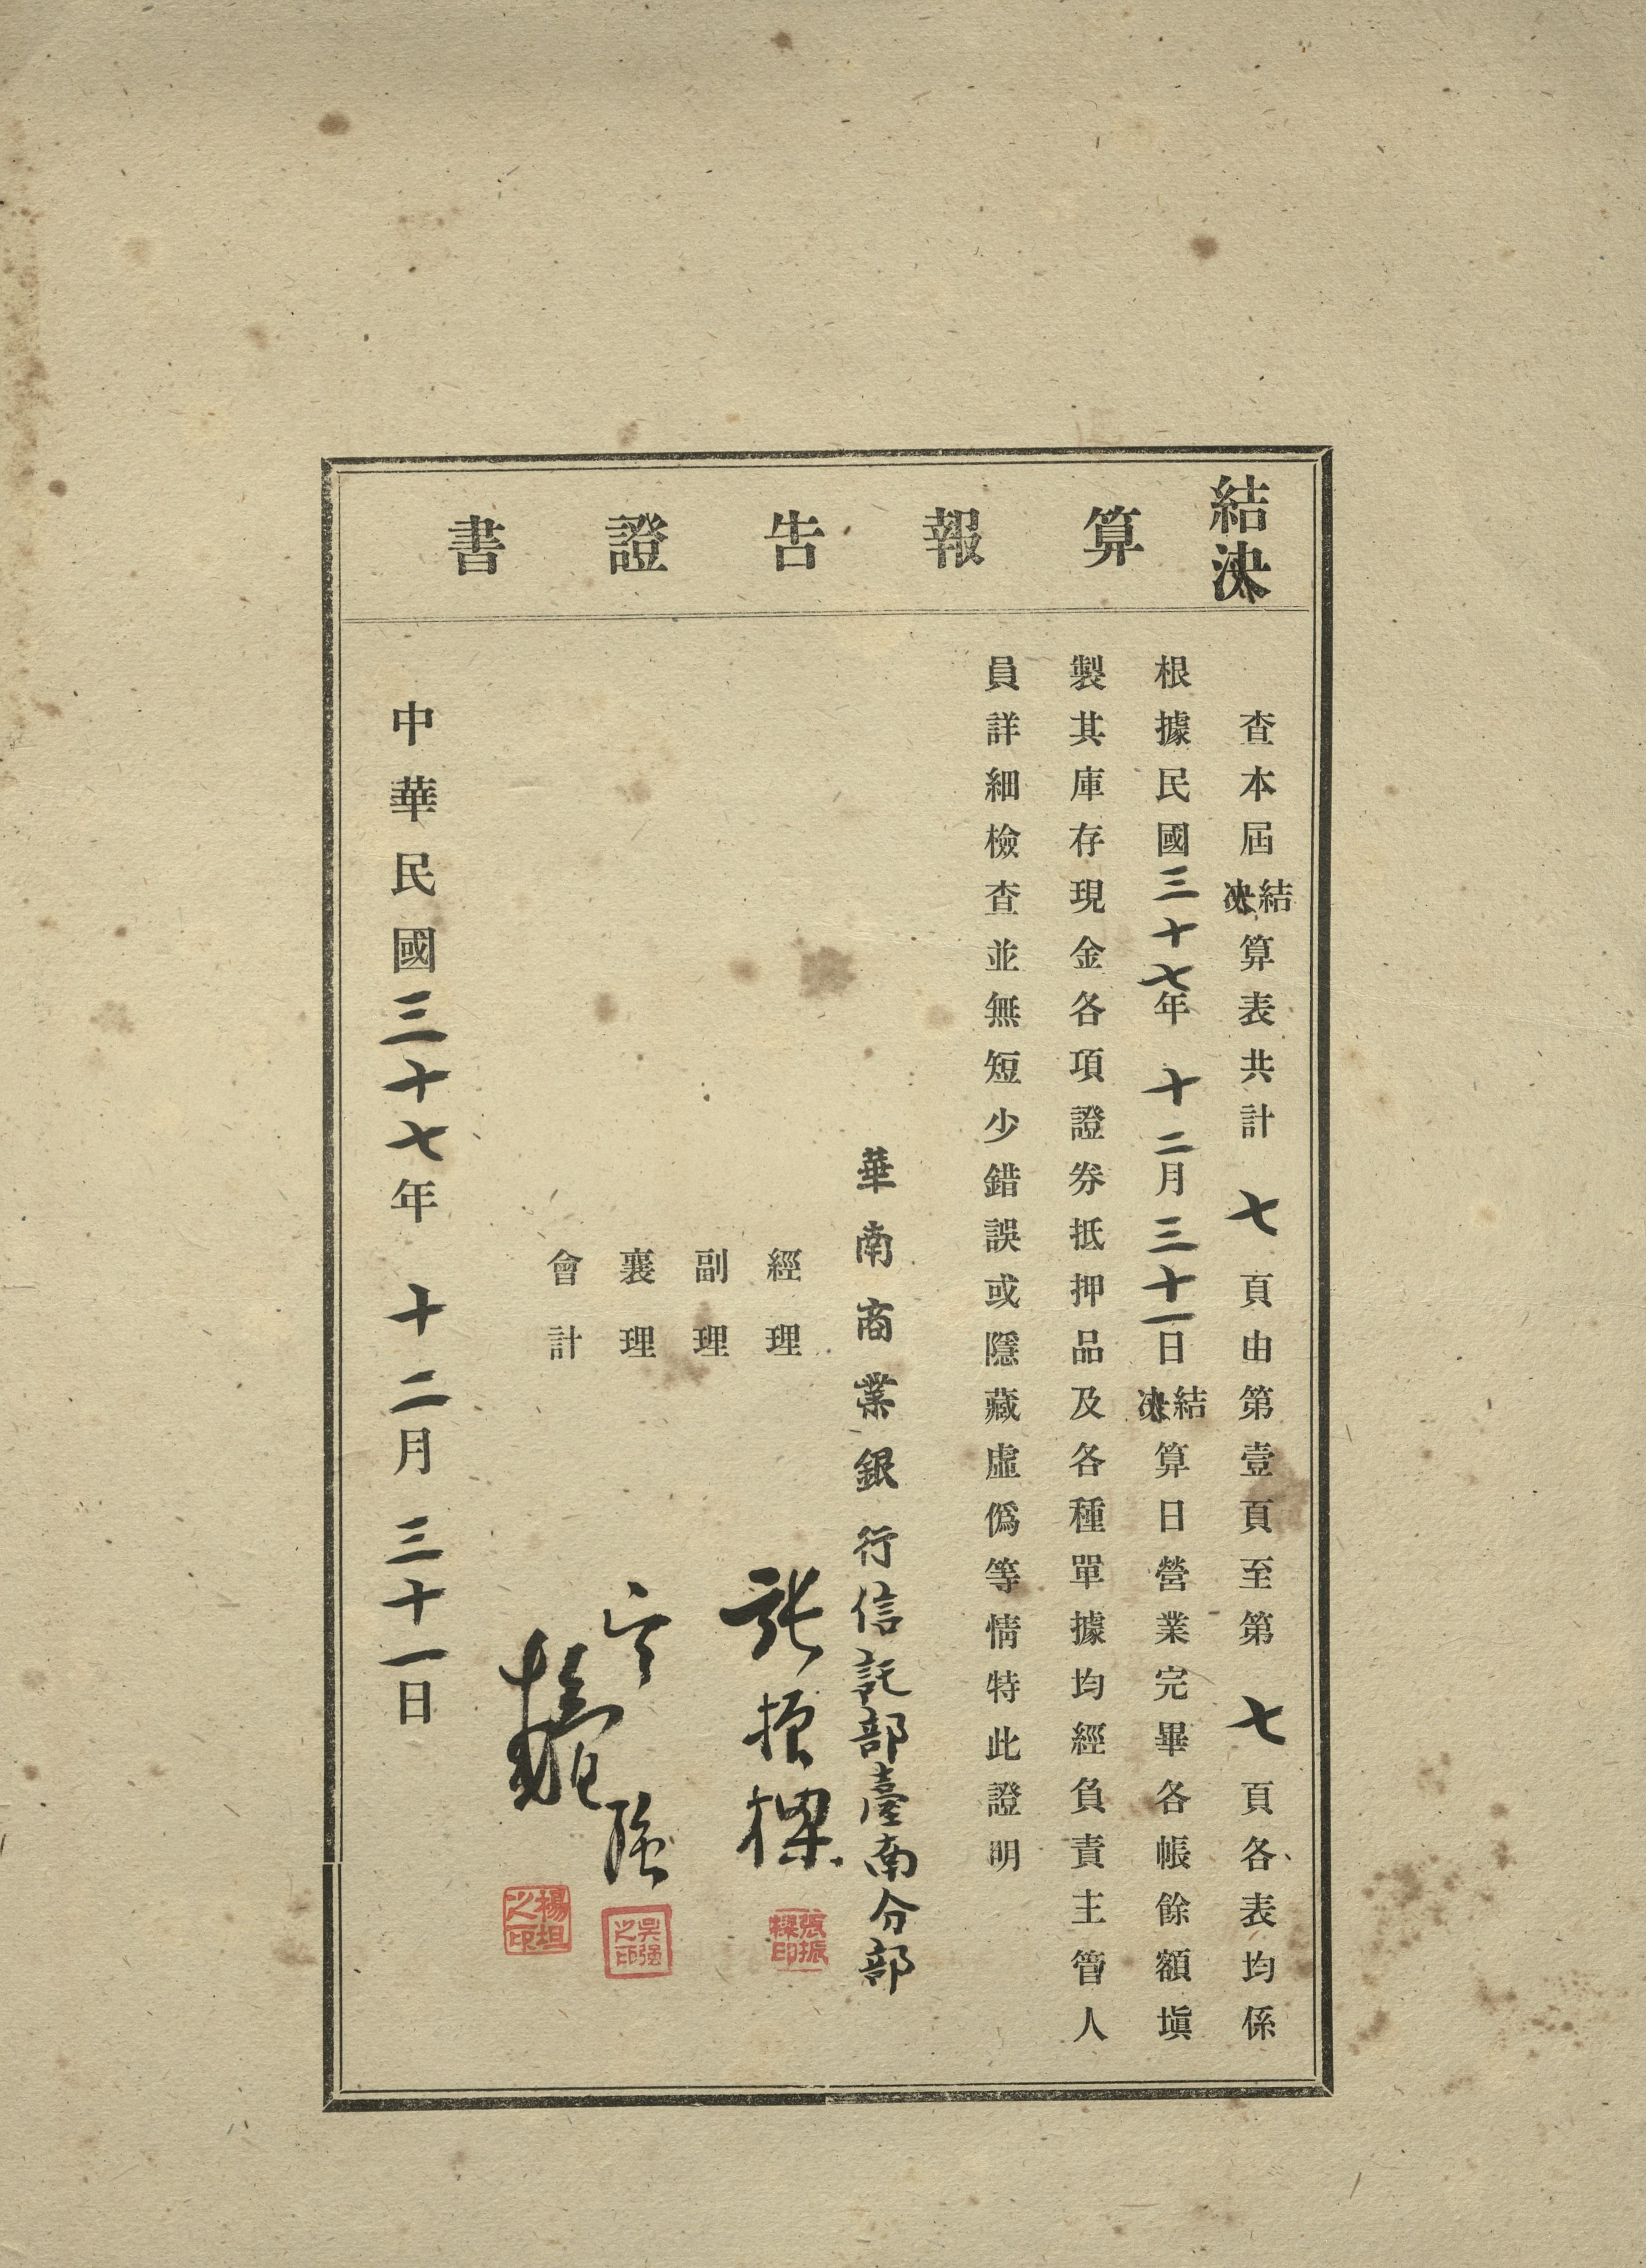 結決算報告證書
查本屆結決算表共計七頁由第壹頁至第七頁各表均係
根據民國三十七年十二月三十一日結決算日營業完畢各帳餘額塡
製其庫存現金各項證券抵押品及各種單據均經負責主管人
員詳細檢查並無短少錯誤或隱藏虛僞等情特此證明
華南商業銀行信託部臺南分部
經理 張振樑
張振樑印
副理
襄理 吳强
吳强之印
會計 楊坦
楊坦之印
中華民國三十七年十二月三十一日